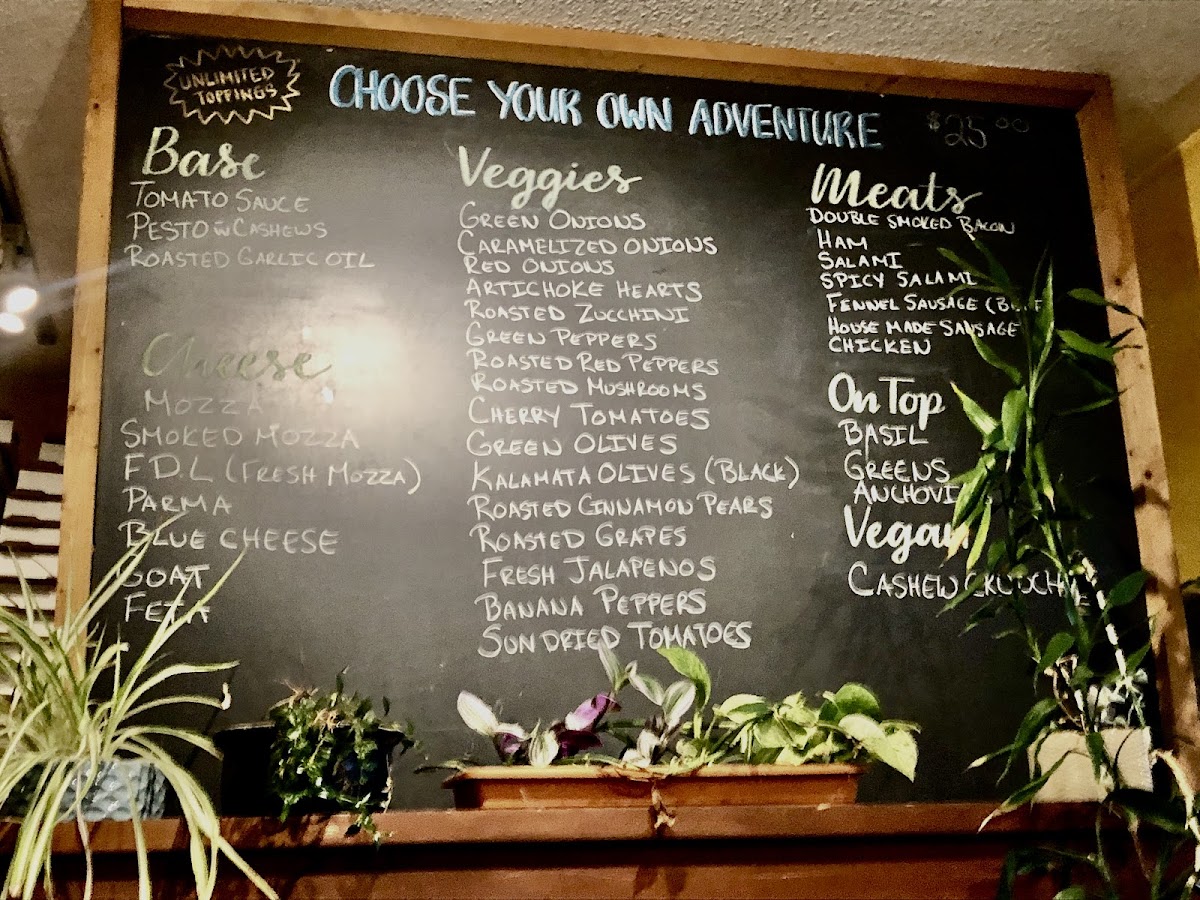 UNLIMITED
TOPPINGS
CHOOSE YOUR OWN ADVENTURE $25.00
Base
TOMATO SAUCE
PESTO w CASHEWS
ROASTED GARLIC OIL
Cheese
MOZZA
SMOKED MOZZA
F.D.L (FRESH MOZZA)
PARMA
BLUE CHEESE
GOAT
FETA
Veggies
GREEN ONIONS
CARAMELIZED ONIONS
RED ONIONS
ARTICHOKE HEARTS
ROASTED ZUCCHINI
GREEN PEPPERS
ROASTED RED PEPPERS
ROASTED MUSHROOMS
CHERRY TOMATOES
GREEN OLIVES
KALAMATA OLIVES (BLACK)
ROASTED CINNAMON PEARS
ROASTED GRAPES
FRESH JALAPENOS
BANANA PEPPERS
SUN DRIED TOMATOES
Meats
DOUBLE SMOKED BACON
HAM
SALAMI
SPICY SALAMI
FENNEL SAUSAGE
HOUSE MADE SAUSAGE
CHICKEN
On Top
BASIL
GREENS
Vegan
CASHEW